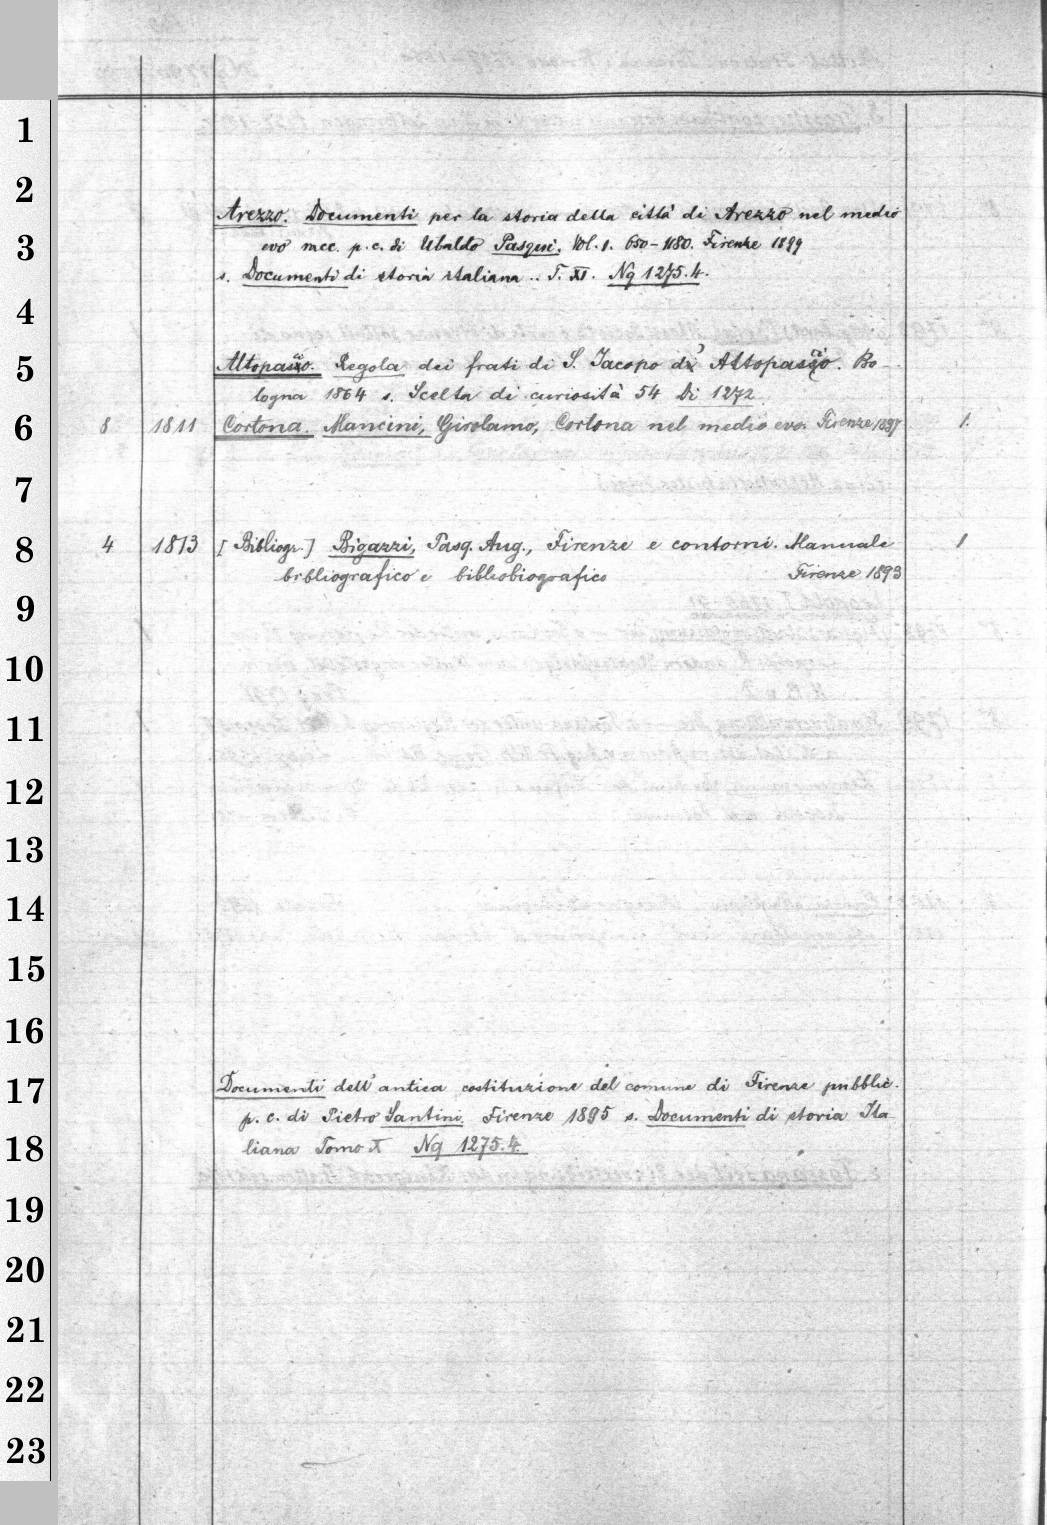 1
2
Arezzo. Documenti per la storia della città di Arezzo nel medio
3
evo racc. p. c. di Ubaldo Pasqui. Vol. 1. 650-1180. Firenze 1899
s. Documenti di storia italiana .. T. XI. Nq 1275.4.
4
5
Altopascio. Regola dei frati di S. Jacopo d' Altopascio. Bo-
logna 1864 s. Scelta di curiosità 54 Di 1272
6 8 1811 Cortona. Mancini, Girolamo, Cortona nel medio evo. Firenze 1897 1.
7
8 4 1813 [Bibliogr.] Bigazzi, Pasq. Aug., Firenze e contorni. Manuale 1
bibliografico e bibliobiografico Firenze 1893
9
10
11
12
13
14
15
16
17 Documenti dell'antica costituzione del comune di Firenze pubblic.
p. c. di Pietro Santini. Firenze 1895 s. Documenti di storia Ita
18 liana Tomo X Nq 1275.4.
19
20
21
22
23